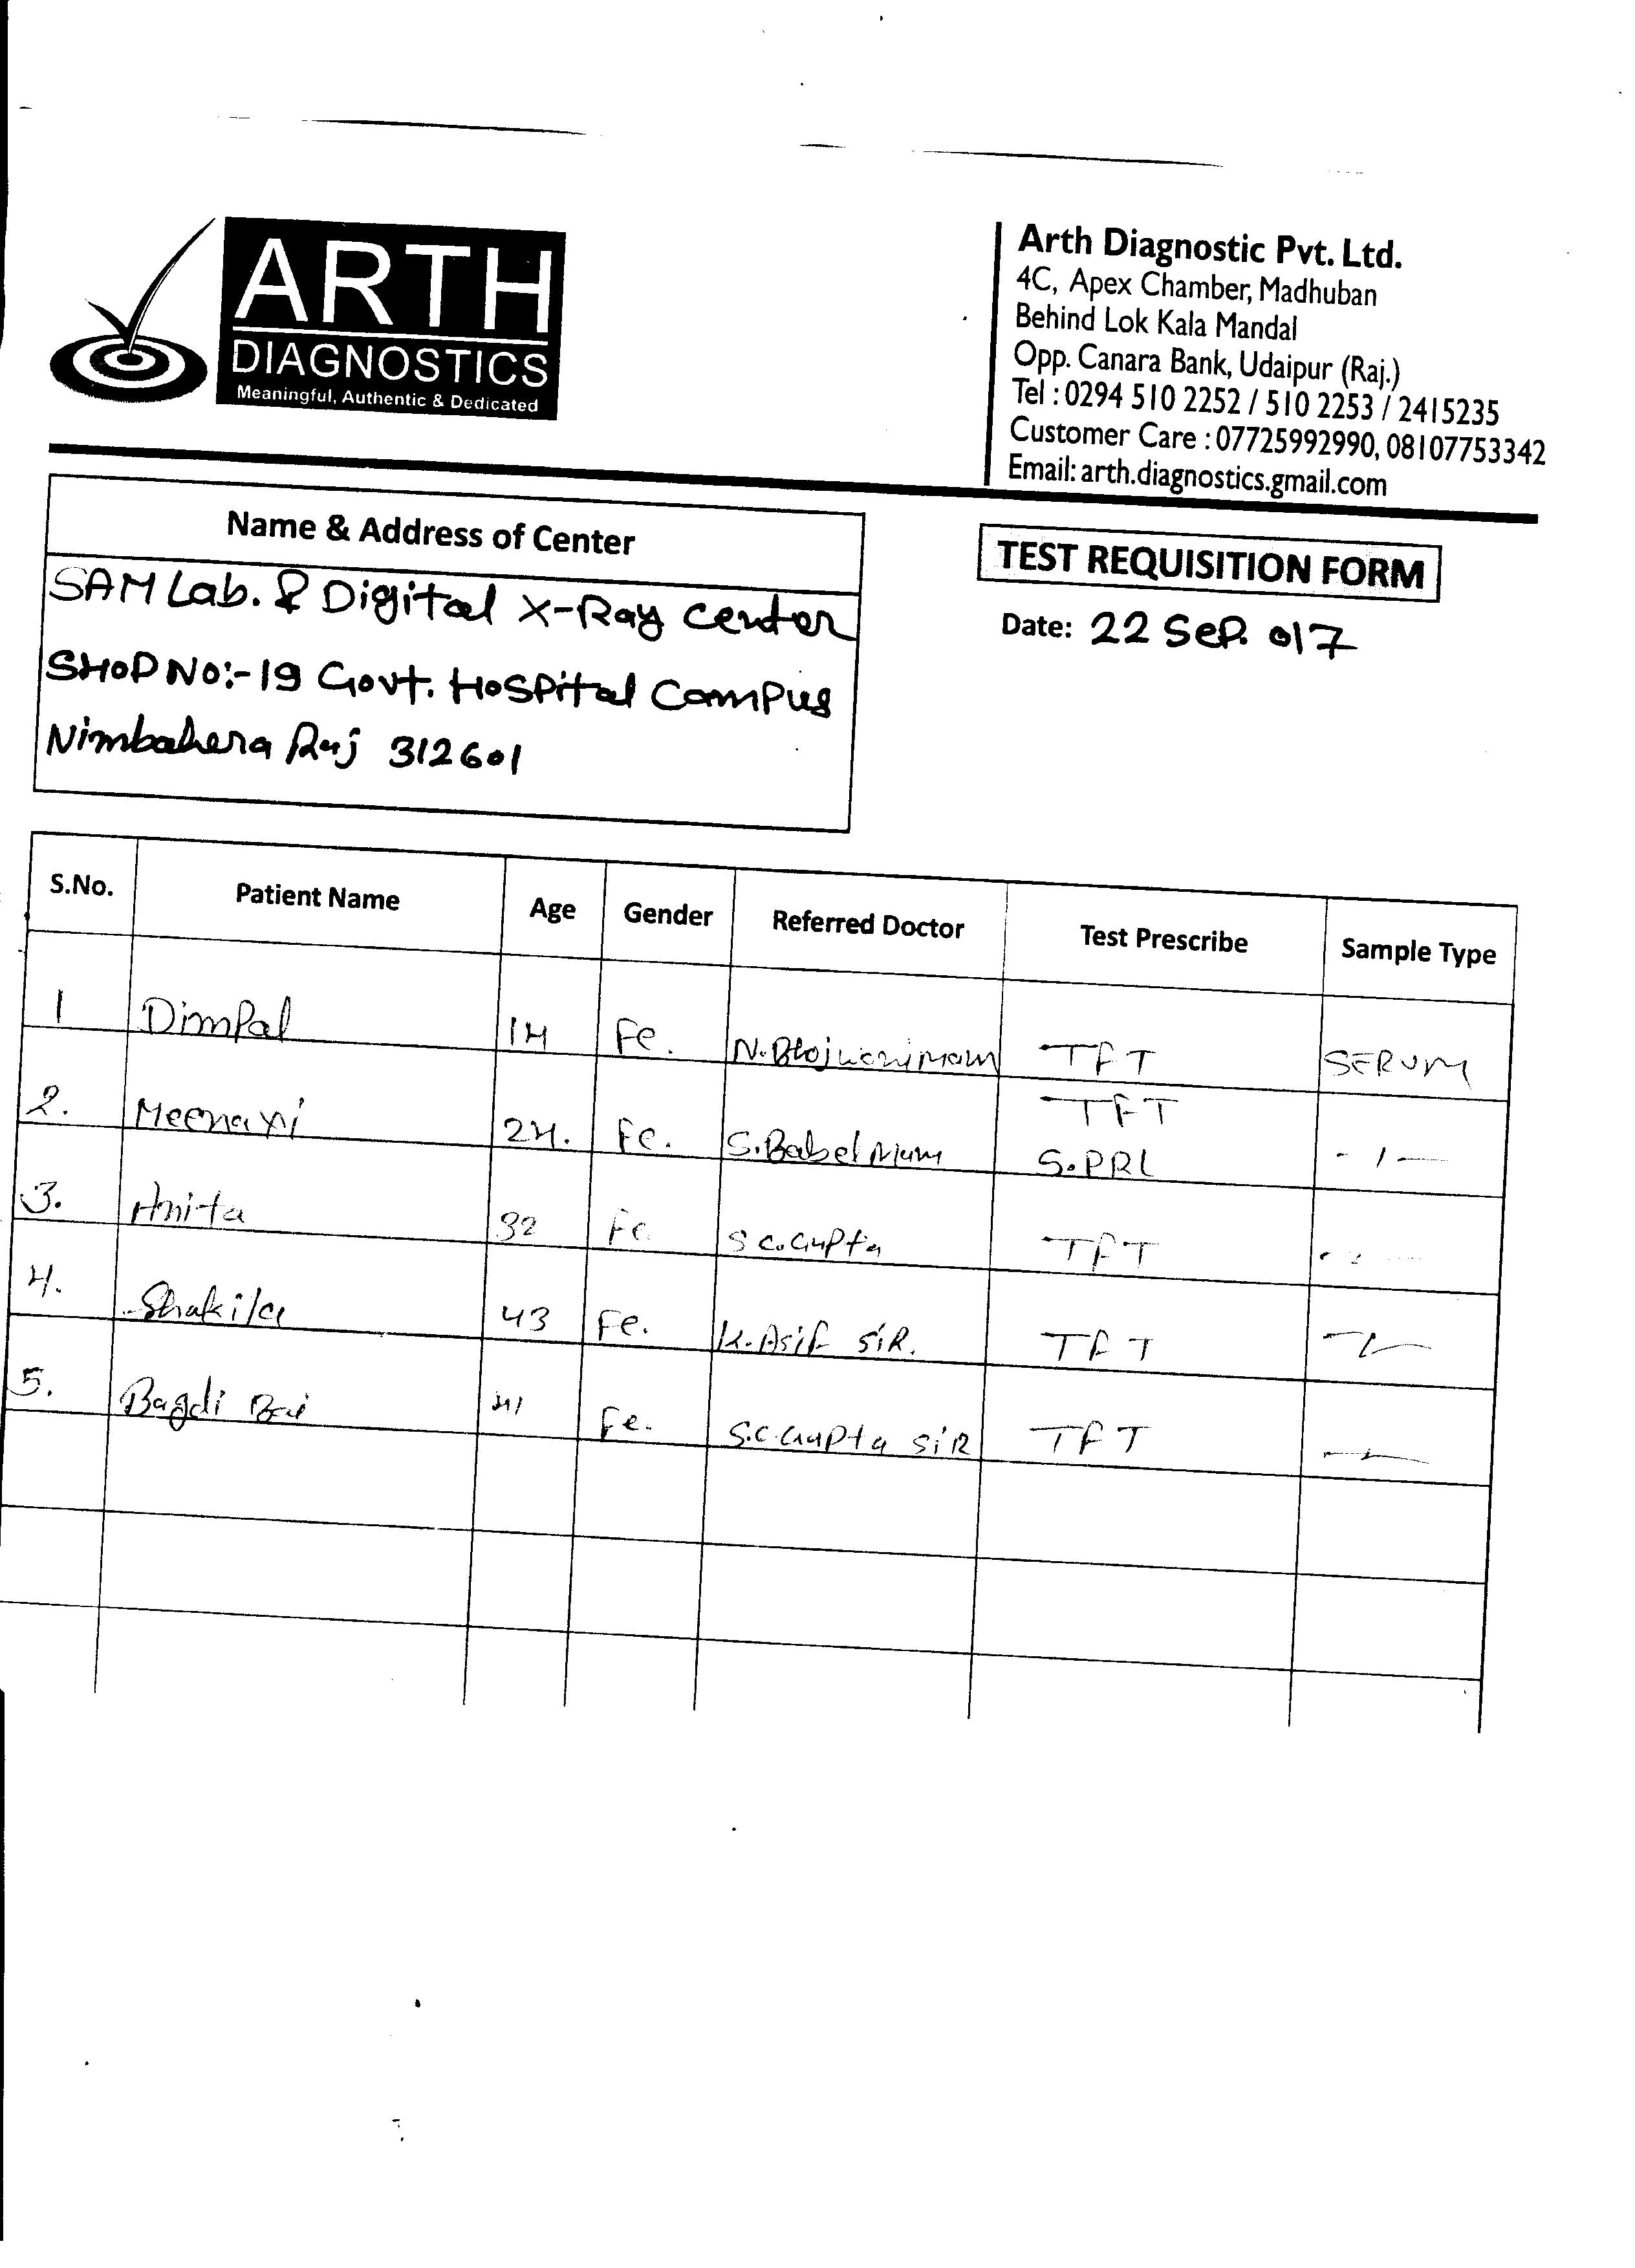 ARTH
DIAGNOSTICS
Meaningful, Authentic & Dedicated
Arth Diagnostic Pvt. Ltd.
4C, Apex Chamber, Madhuban
Behind Lok Kala Mandal
Opp. Canara Bank, Udaipur (Raj.)
Tel : 0294 510 2252 / 510 2253 / 2415235
Customer Care : 07725992990, 08107753342
Email: arth.diagnostics.gmail.com
Name & Address of Center
SAM Lab. & Digital X-Ray Center
SHOP NO:- 19 Govt. HOSPital Campus
Nimbahera Raj 312601
TEST REQUISITION FORM
Date: 22 Sep. 017
S.No. Patient Name Age Gender Referred Doctor Test Prescribe Sample Type
1 Dimpal 14 Fe. N. Bhojwani Mam TFT SERUM
2. Meenaxi 24. Fe. S. Babel Mam TFT S.PRL - 1 -
3. Anita 32 Fe. S C. Gupta TFT
4. Shakila 43 Fe. K. Asif SiR. TFT
5. Bagdi Bai 41 Fe. S.C. Gupta SiR TFT